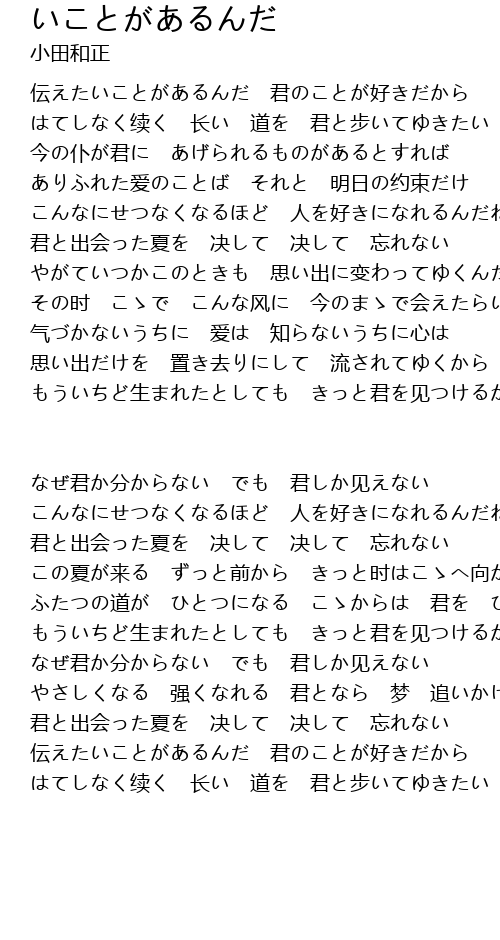 いことがあるんだ
小田和正
伝えたいことがあるんだ　君のことが好きだから
はてしなく续く　长い　道を　君と歩いてゆきたい
今の仆が君に　あげられるものがあるとすれば
ありふれた爱のことば　それと　明日の约束だけ
こんなにせつなくなるほど　人を好きになれるんだ
君と出会った夏を　决して　决して　忘れない
やがていつかこのときも　思い出に变わってゆくんだ
その时　こゝで　こんな风に　今のまゝで会えたら
气づかないうちに　爱は　知らないうちに心は
思い出だけを　置き去りにして　流されてゆくから
もういちど生まれたとしても　きっと君を见つける
なぜ君か分からない　でも　君しか见えない
こんなにせつなくなるほど　人を好きになれるんだ
君と出会った夏を　决して　决して　忘れない
この夏が来る　ずっと前から　きっと时はこゝへ向
ふたつの道が　ひとつになる　こゝからは　君を
もういちど生まれたとしても　きっと君を见つける
なぜ君か分からない　でも　君しか见えない
やさしくなる　强くなれる　君となら　梦　追いか
君と出会った夏を　决して　决して　忘れない
伝えたいことがあるんだ　君のことが好きだから
はてしなく续く　长い　道を　君と歩いてゆきたい